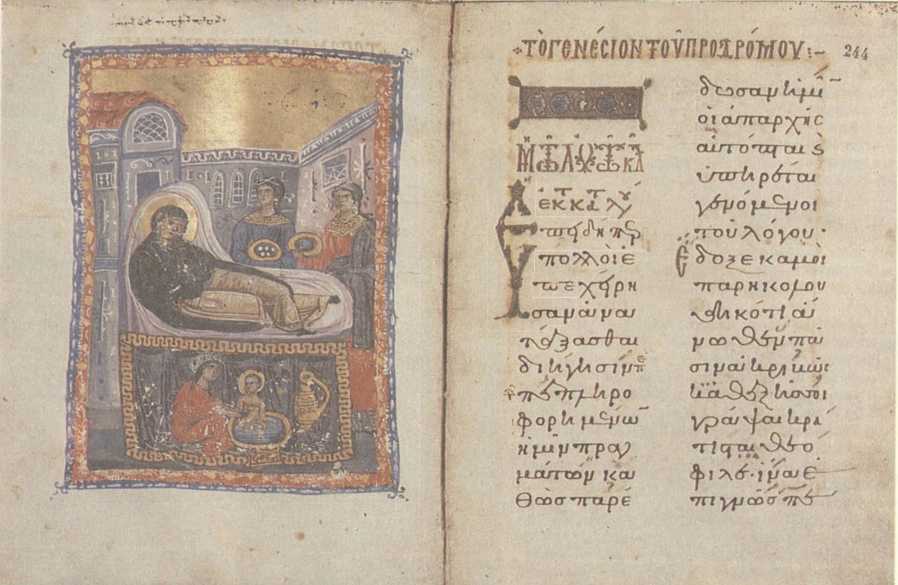 ΤΟ ΓΕΝΕΣΙΟΝ ΤΟΥ ΠΡΟΔΡΟΜΟΥ:–
244
ἐκ κατα λου
Ἐπειδήπερ
πολλοὶ ἐ
πεχείρη
σαν ἀνα
τάξασθαι
διήγησιν π
ε πεπληρο
φορημένων
ἡμῖν πραγ
μάτων κα
θὼς παρέ
δωσαν ἡμῖν
οἱ ἀπαρχῆς
αὐτόπται καὶ
ὑπηρέται
γενόμενοι
τοῦ λόγου·
ἔδοξε καμοὶ
παρηκολου
θηκότι ἄν
ωθεν πᾶ
σιν ἀκριβῶς
καθεξῆς σοι
γράψαι κρά
τιστε Θεό
φιλε· ἵνα ἐ
πιγνῶς πε